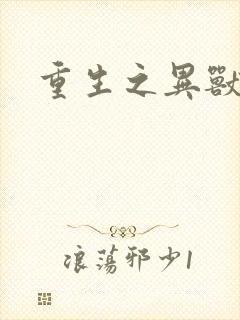 重生之異獸
浪蕩邪少1